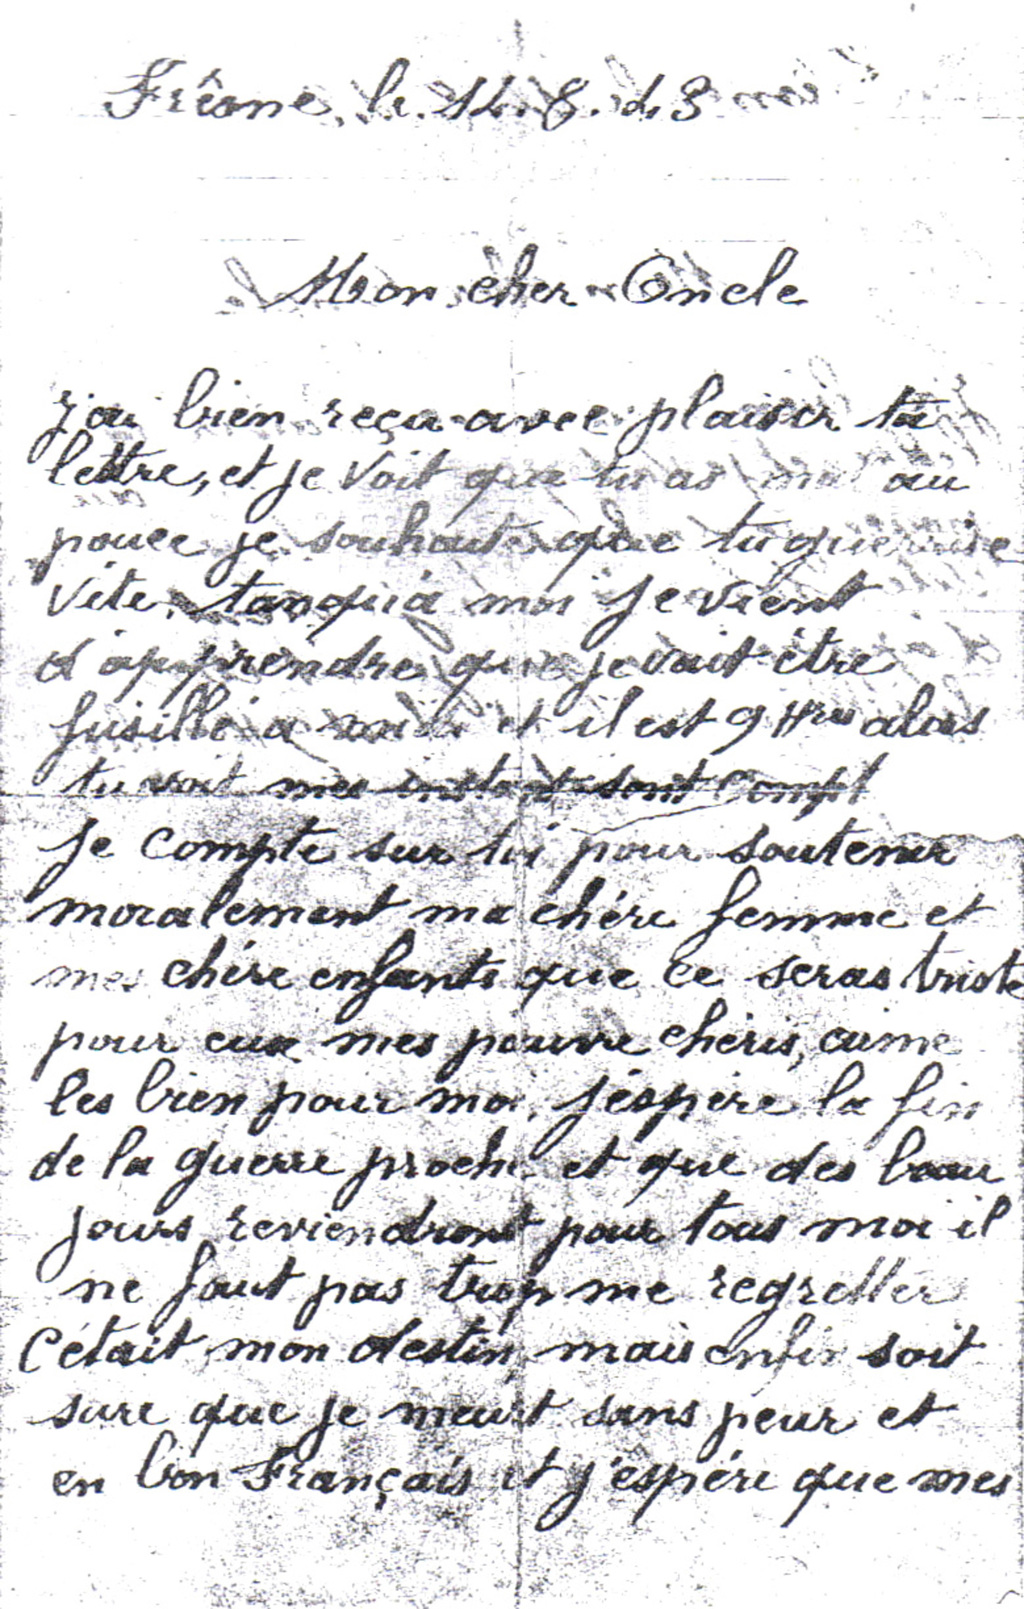 Frèsne, le. 14. 8. 43
Mon cher Oncle
J'ai bien reçu avec plaisir ta
lettre, et je voit que tu as mal au
pouce je souhaite que tu guerrise
vite, tanqu'à moi je vient
d'apprendre que je vait être
fusillé a midi et il est 9 Hres alors
tu voit mes instant sont compt
je compte sur toi pour soutenir
moralement ma chére femme et
mes chére enfants que ce seras triste
pour eux mes pauvre chéris, aime
les bien pour moi, j'éspère la fin
de la guerre proche et que des beau
jours reviendront pour tous moi il
ne faut pas trop me regretter
c'était mon destin, mais enfin soit
sure que je meurt sans peur et
en bon Français et j'espére que mes